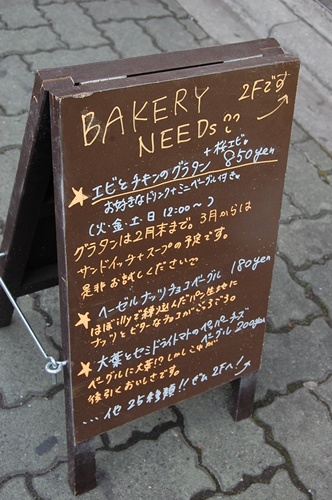 BAKERY
2Fです
NEEDs
+桜エビ。
エビとチキンのグラタン 850yen
お好きなドリンク+ミニベーグル付き。
(火・金・土・日 12:00〜)
グラタンは2月末まで。3月からは
サンドイッチ+スープの予定です。
是非お試しくださいで
ヘーゼルナッツチョコベーグル 180yen
ほぼillyで練り込んだパン生地に
ナッツとビターなチョコがごろごろ。
大葉とセミドライトマトのペッパーチーズ
ベーグル 200yen
ベーグルに大葉!?しかしこれが
後引くおいしさです。
...他25種類!!ぜひ2Fへ!